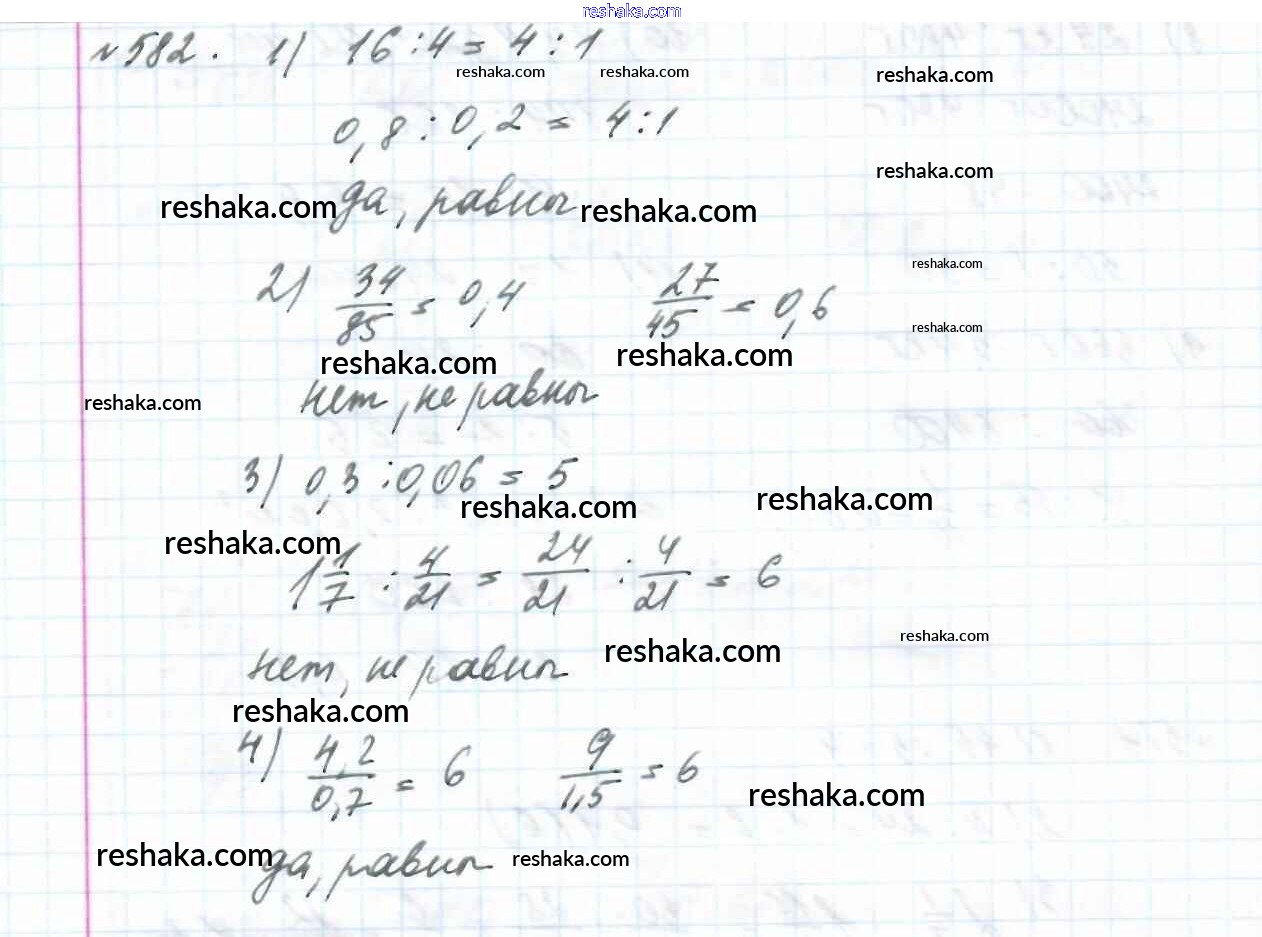 reshaka.com
№582. 1) 16 : 4 = 4 : 1
reshaka.com reshaka.com reshaka.com
0,8 : 0,2 = 4 : 1
reshaka.com
reshaka.com да, равны reshaka.com
reshaka.com
2) 34/85 = 0,4 27/45 = 0,6
reshaka.com
reshaka.com reshaka.com
reshaka.com нет, не равны
3) 0,3 : 0,06 = 5
reshaka.com reshaka.com
reshaka.com
1 1/7 : 4/21 = 24/21 : 4/21 = 6
reshaka.com
нет, не равны reshaka.com
reshaka.com
4) 4,2/0,7 = 6 9/1,5 = 6
reshaka.com
reshaka.com да, равны reshaka.com